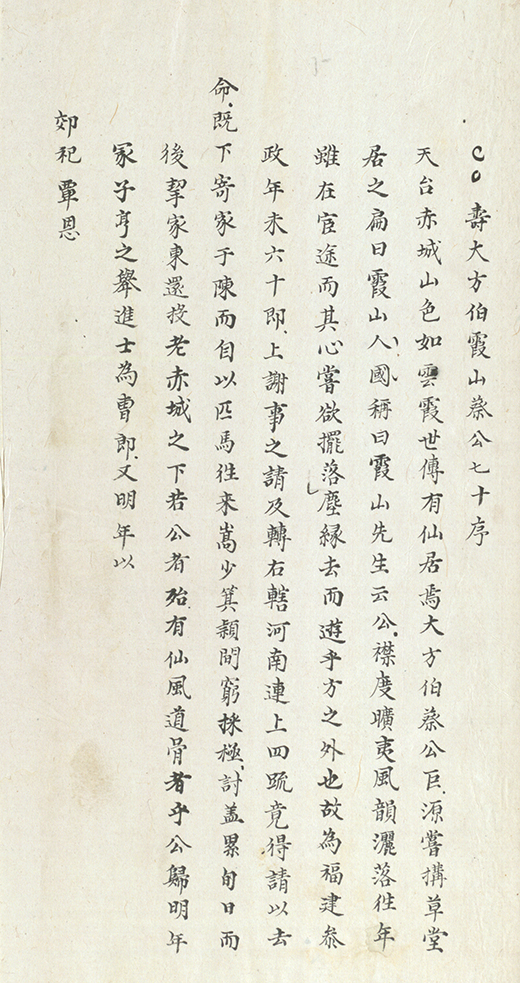 壽大方伯霞山蔡公七十序
天台赤城山色如雲霞世傳有仙居焉大方伯蔡公巨源嘗搆草堂
居之扁曰霞山人國稱曰霞山先生云公襟度曠夷風韻灑落徃年
雖在宦途而其心嘗欲擺落塵緣去而遊乎方之外也故為福建叅
政年未六十即上謝事之請及轉右轄河南連上四疏竟得請以去
命既下寄家于陳而自以匹馬徃来嵩少箕潁間窮採極討盖累旬日而
後挈家東還投老赤城之下若公者殆有仙風道骨者乎公歸明年
冢子亨之舉進士為曹郎又明年以
郊祀覃恩